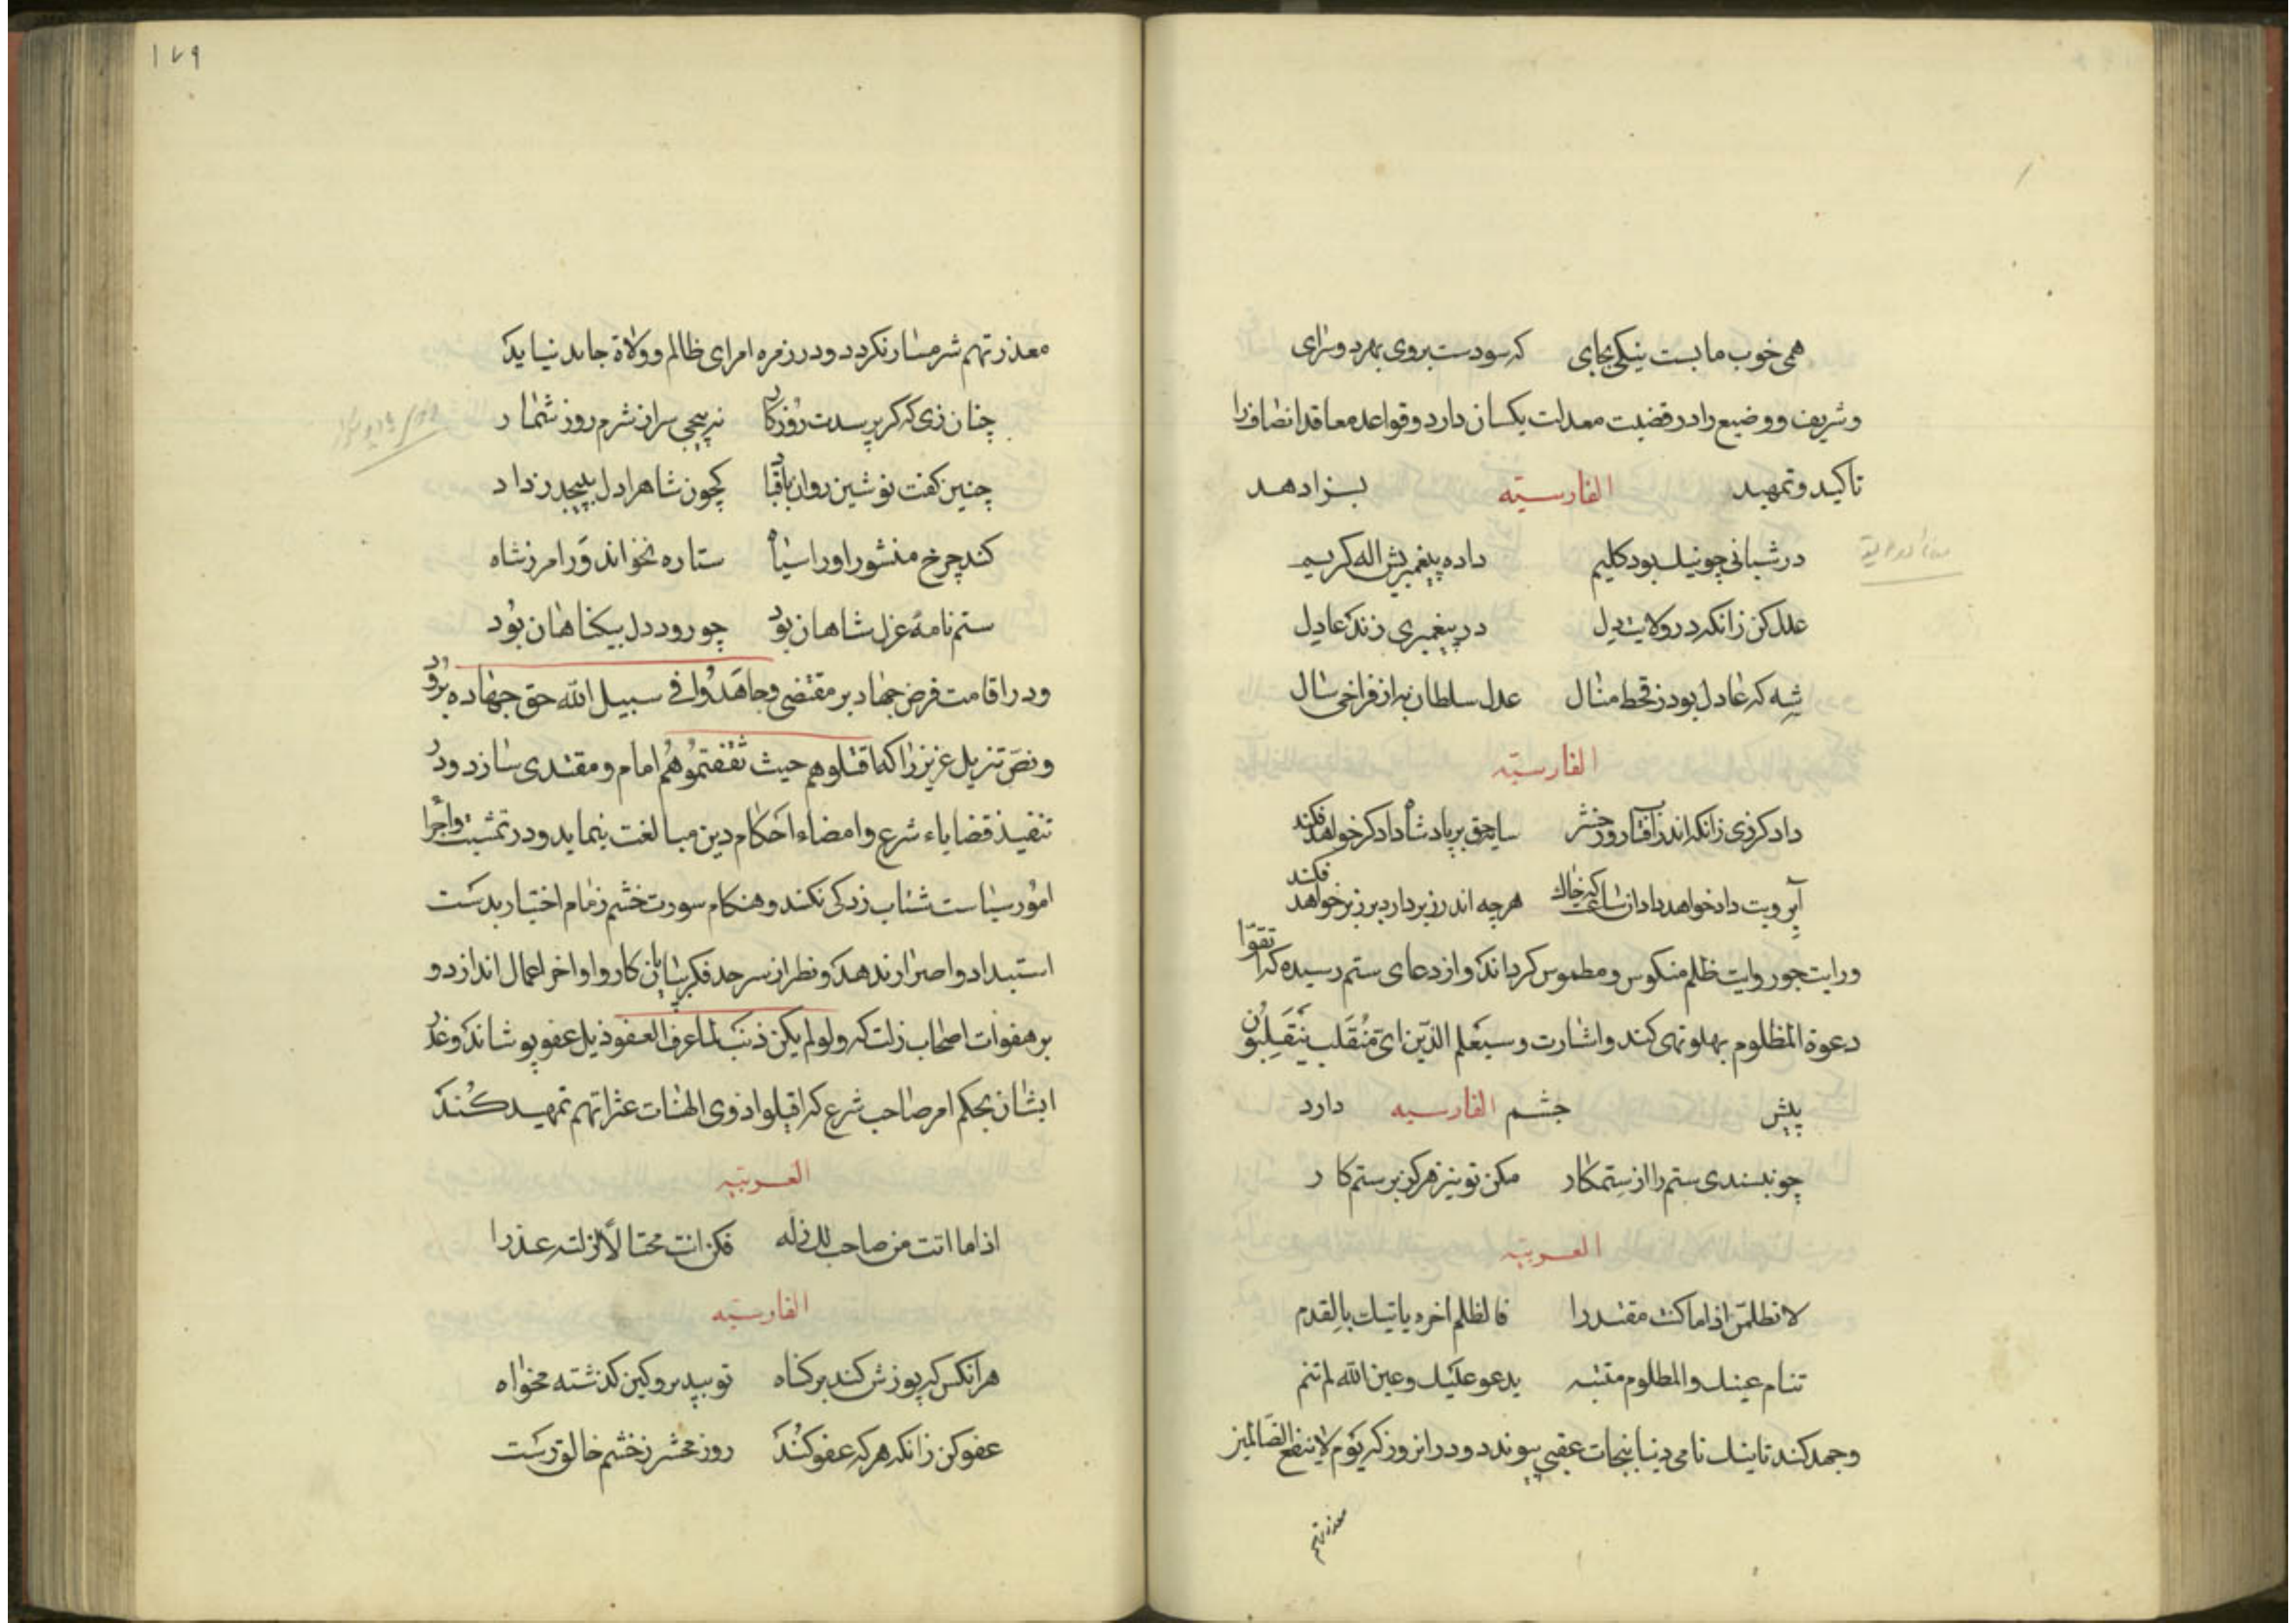 همی خوب ما بست نیکی بجای که سودست بروی بهر دو سرای
و شریف و وضیع را در قضیت معدلت یکسان دارد و قواعد معاقد انصاف را
تاکید و تمهید الفارسیّه بسزا دهد
در شبانی چو نیک بود کلیم داده پیغمبریش اله کریم
عدل کن زانکه در ولایت دل در پیغمبری زند عادل
شه که عادل بود ز قحط منال عدل سلطان به از فراخی سال
الفارسیّه
داد کر زی زانکه اندر آفتاب روز حشر سایه حق بر پادشاه دادکر خواهد فکند
آبرویت داد خواهد داد از هرچه اندر زیر دارد بر زبر خواهد فکند
و رایت جور وایت ظلم منکوس و مطموس کرداند و از دعای ستم رسیده که اتقوا
دعوة المظلوم پهلو تهی کند و اشارت وسیعلم الذین ای منقلب ینقلبون
پیش چشم الفارسیه دارد
چو نپسندی ستم را از ستمکار مکن تو نیز هرکز بر ستم کار
العربیّه
لا تظلمنّ اذا ما کنت مقتدرا فالظلم اخره یاتیک بالقدم
تنام عینک والمظلوم منتبه یدعو علیک وعین الله لم تنم
و جهد کند تا نیک نامی دنیا بنجات عقبی پیوندد و در ان روز که یوم لا ینفع الضالمین
معذرتهم
۱۷۹
معذرتهم شرمسار نکردد و در زمره امرای ظالم و ولاة جاید نیاید
چنان زی که کر پرسدت روزکار نپیچی سر از شرم روز شمار
چنین کفت نوشین روان با قباد کچون شاه را دل بپیچد ز داد
کند چرخ منشور او را سیاه ستاره نخواند ورا مرز شاه
ستم نامهٔ عزل شاهان بود چو رود دل بیکناهان بود
و در اقامت فرض جهاد بر مقتضی وجاهدوا فی سبیل الله حق جهاده برود
و نص تنزیل عزیز را که اقتلوهم حیث ثقفتموهم امام و مقتدی سازد و در
تنفیذ قضایاء شرع و امضاء احکام دین مبالغت نماید و در تمشیت و اجرا
امور سیاست شتاب زدکی نکند و هنکام سورت خشم زمام اختیار بدست
استبداد و اصرار ندهد و نظر از سرحد فکر بپایان کار و اواخر اعمال اندازد و
بر هفوات اصحاب زلت که ولو لم یکن ذنب لما عرف العفو ذیل عفو پوشاند و عذر
ایشان بحکم امر صاحب شرع که اقیلوا ذوی الهنات عثراتهم تمهید کند
العربیّه
اذا ما اتت من صاحب لک زله فکن انت محتالا لزلته عذرا
الفارسیّه
هر انکس که پوزش کند بر کناه تو بپذیر و کین کذشته مخواه
عفو کن زانکه هر که عفو کند روز محشر ز خشم خالق رست